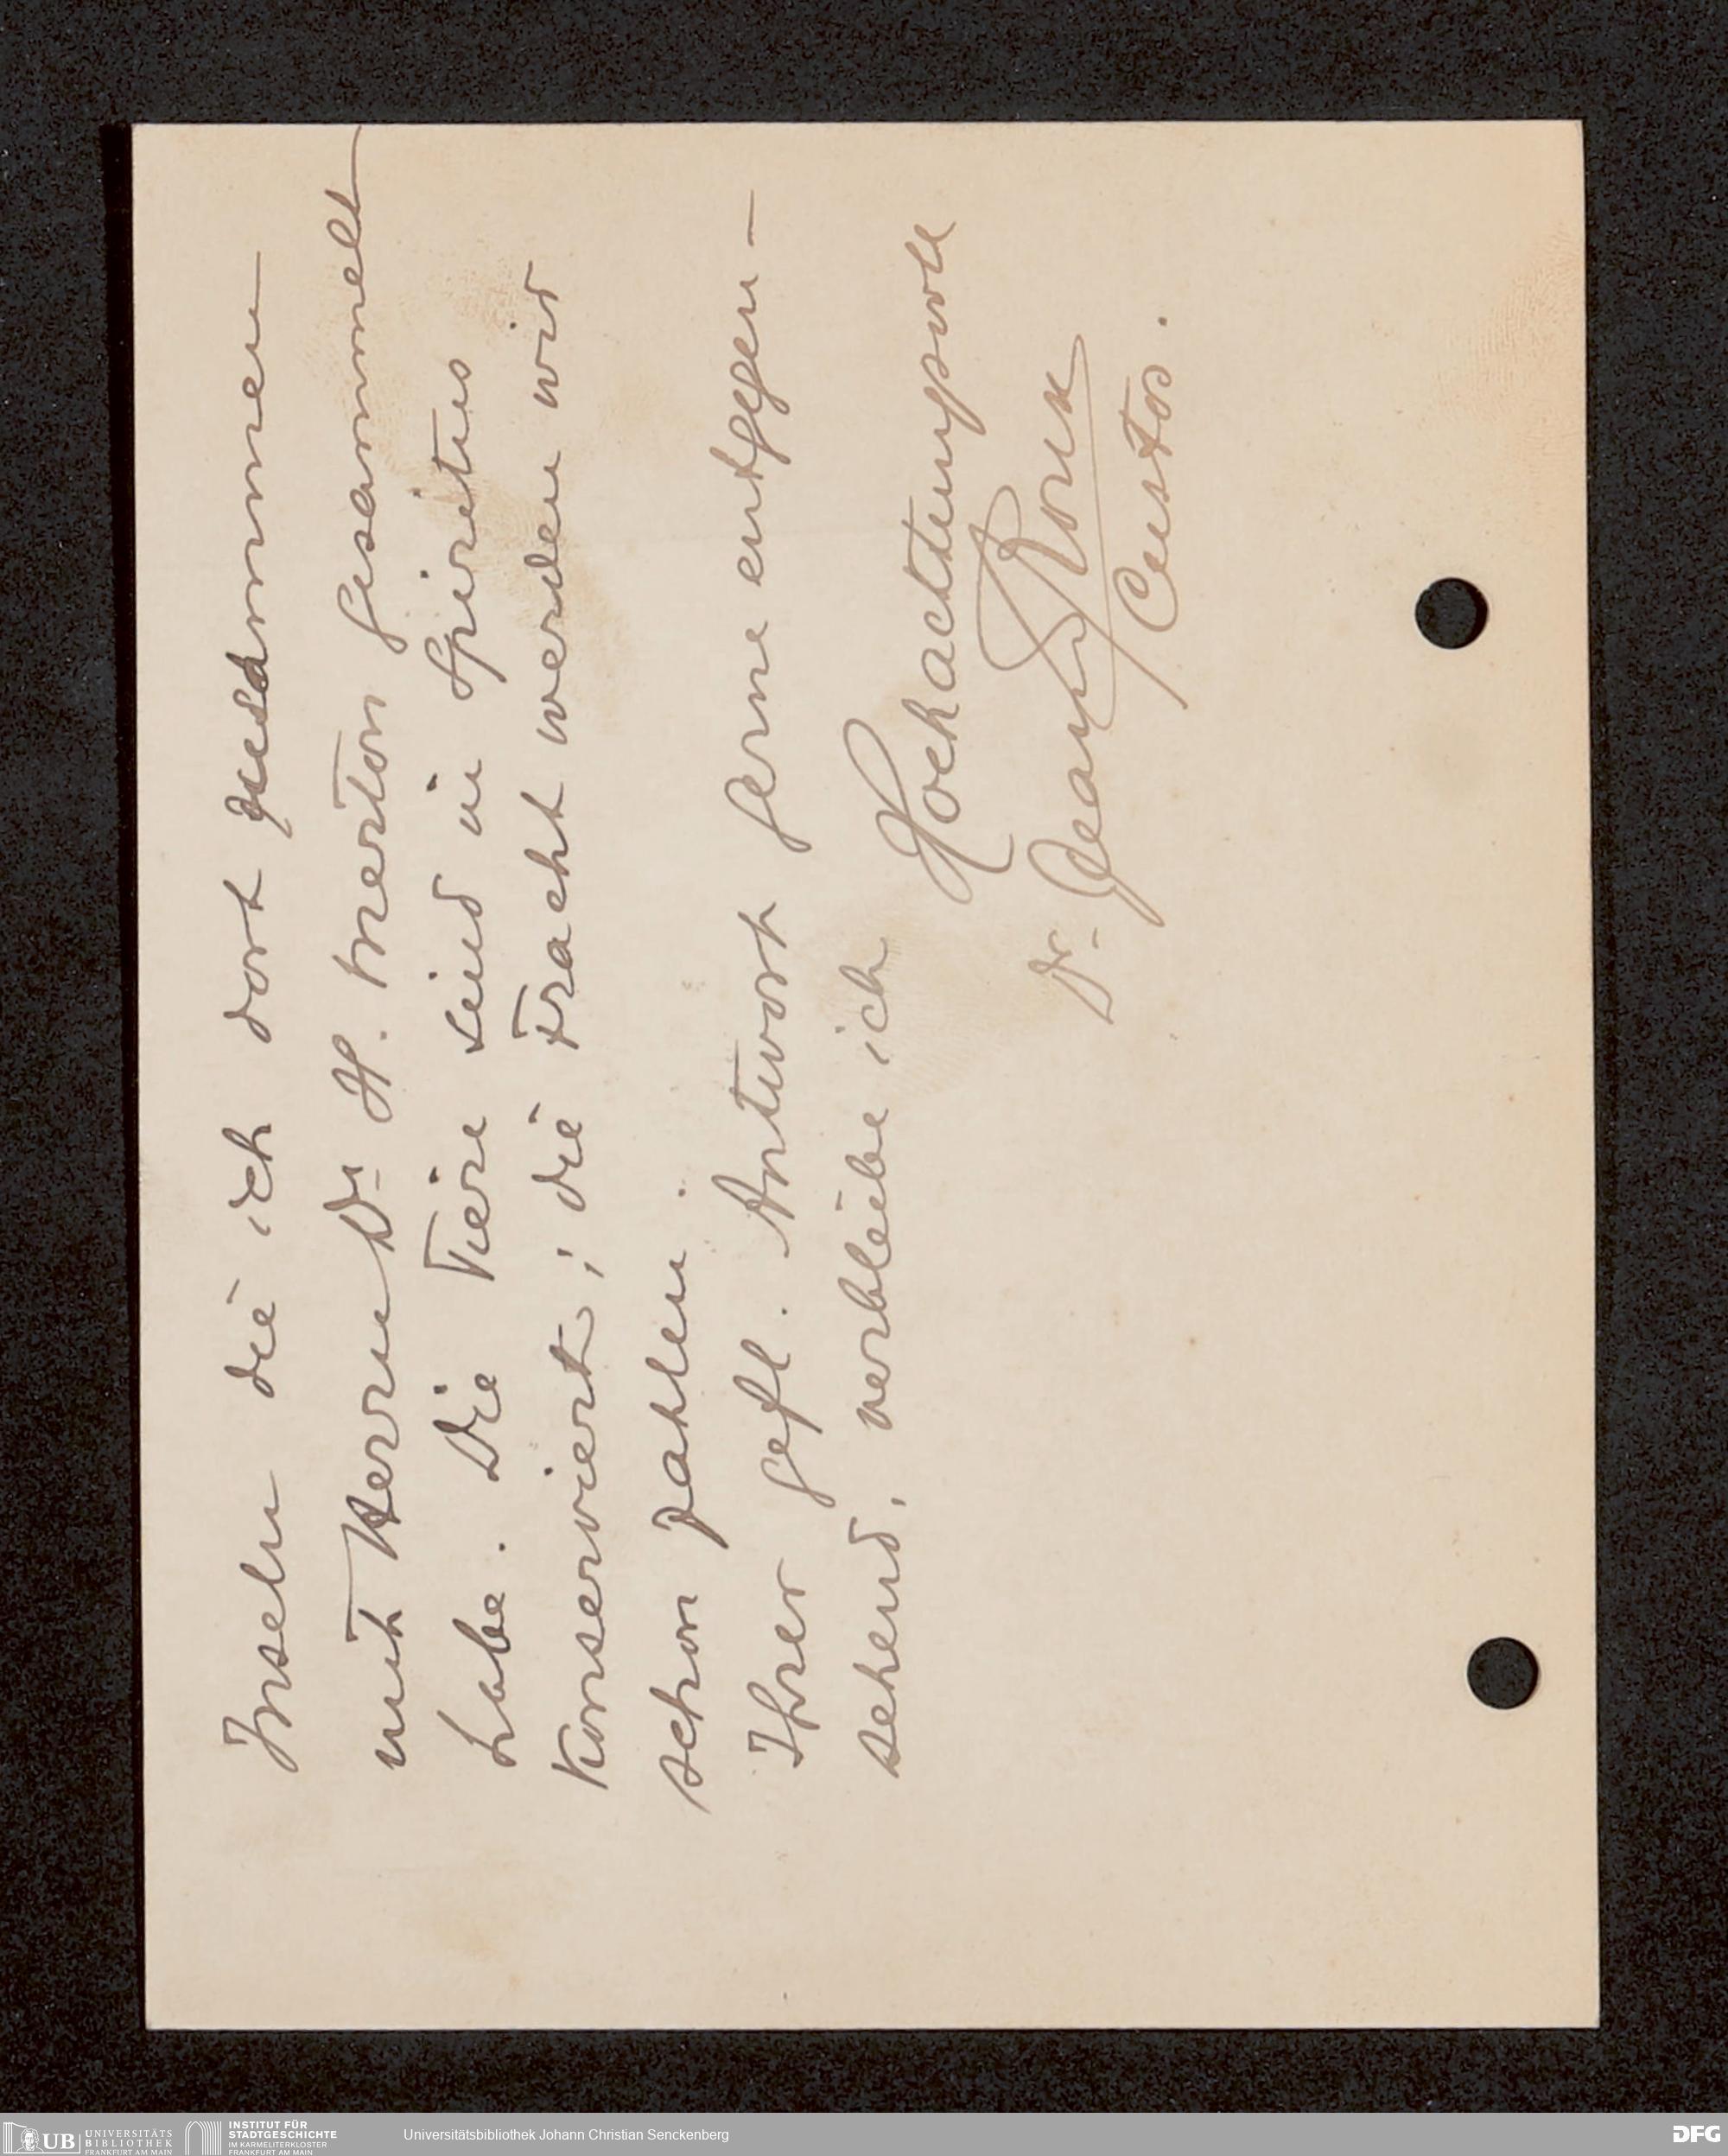 Inseln die ich dort zusammen
mit Herrn Dr H. Merton gesammelt
habe. Die Tiere sind in Spiritus
konserviert; die Fracht werden wir
schon zahlen.
Ihrer gefl. Antwort gerne entgegen-
sehend, verbleibe ich
Hochachtungsvoll
Dr. Jean Roux
Custos.
UB UNIVERSITÄTS
BIBLIOTHEK
FRANKFURT AM MAIN
INSTITUT FÜR
STADTGESCHICHTE
IM KARMELITERKLOSTER
FRANKFURT AM MAIN
Universitätsbibliothek Johann Christian Senckenberg
DFG